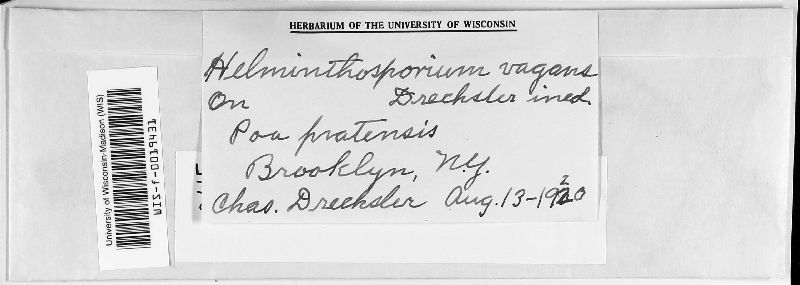 HERBARIUM OF THE UNIVERSITY OF WISCONSIN
Helminthosporium vagans
On Drechsler ined.
Poa pratensis
Brooklyn, N.Y.
Chas. Drechsler Aug. 13-1920
University of Wisconsin-Madison (WIS)
WIS-f-0019431